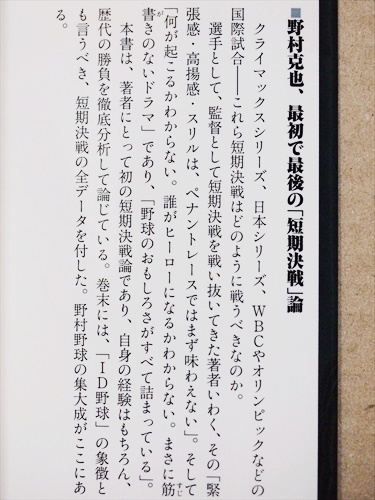 ■野村克也、最初で最後の「短期決戦」論
クライマックスシリーズ、日本シリーズ、WBCやオリンピックなどの
国際試合――これら短期決戦はどのように戦うべきなのか。
選手として、監督として短期決戦を戦い抜いてきた著者いわく、その「緊
張感・高揚感・スリルは、ペナントレースではまず味わえない」。そして
「何が起こるかわからない。誰がヒーローになるかわからない。まさに筋
書きのないドラマ」であり、「野球のおもしろさがすべて詰まっている」。
本書は、著者にとって初の短期決戦論であり、自身の経験はもちろん、
歴代の勝負を徹底分析して論じている。巻末には、「ID野球」の象徴と
も言うべき、短期決戦の全データを付した。野村野球の集大成がここにあ
る。